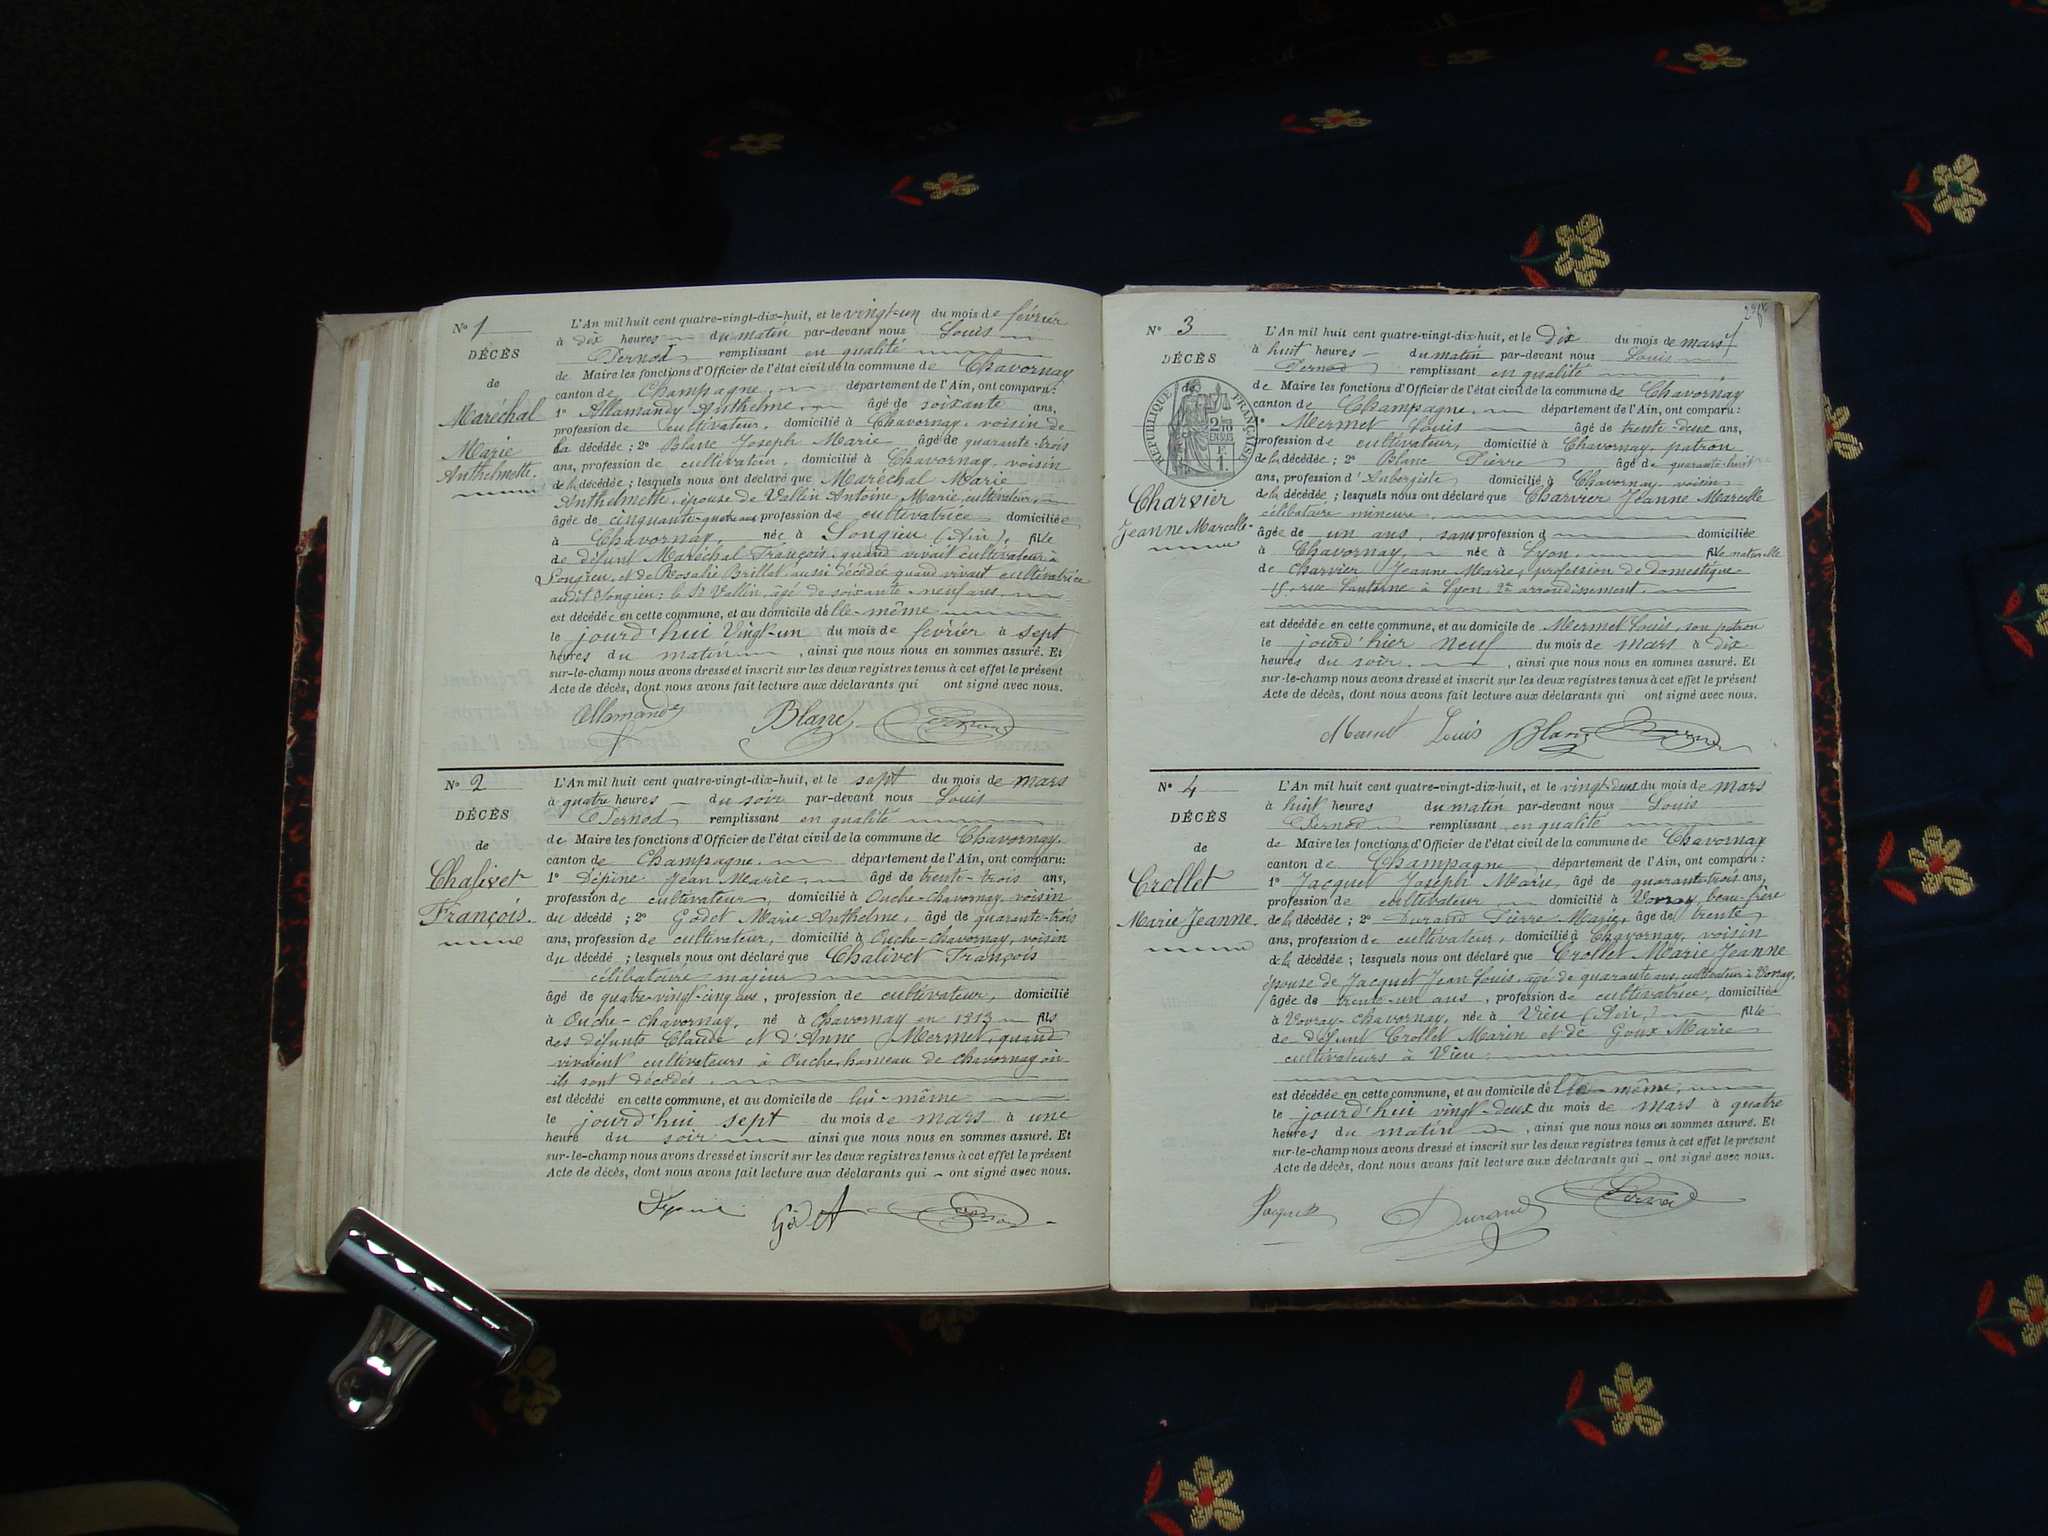 N° 1
DÉCÈS
de
Maréchal
Marie
Anthelmette
L'An mil huit cent quatre-vingt-dix-huit, et le vingt-un du mois de février
à dix heures du matin par-devant nous Louis
Pernod remplissant en qualité
de Maire les fonctions d'Officier de l'état civil de la commune de Chavornay
canton de Champagne, département de l'Ain, ont comparu:
1° Allamandy Anthelme, âgé de soixante ans,
profession de cultivateur, domicilié à Chavornay, voisin de
la décédée; 2° Blanc Joseph Marie âgé de quarante-trois
ans, profession de cultivateur, domicilié à Chavornay, voisin
de la décédée; lesquels nous ont déclaré que Maréchal Marie
Anthelmette, épouse de Vallin Antoine Marie, cultivateur,
âgée de cinquante-quatre ans profession de cultivatrice domiciliée
à Chavornay, née à Songieu (Ain), fille
de défunt Maréchal François, quand vivait cultivateur à
Songieu, et de Rosalie Brillat aussi décédée quand vivait cultivatrice
audit Songieu; le Sr Vallin, âgé de soixante-neuf ans,
est décédée en cette commune, et au domicile d'elle-même
le jourd'hui vingt-un du mois de février à sept
heures du matin, ainsi que nous nous en sommes assuré. Et
sur-le-champ nous avons dressé et inscrit sur les deux registres tenus à cet effet le présent
Acte de décès, dont nous avons fait lecture aux déclarants qui ont signé avec nous.
Allamandy Blanc Pernod
N° 2
DÉCÈS
de
Chalivet
François.
L'An mil huit cent quatre-vingt-dix-huit, et le sept du mois de mars
à quatre heures du soir par-devant nous Louis
Pernod remplissant en qualité
de Maire les fonctions d'Officier de l'état civil de la commune de Chavornay.
canton de Champagne. département de l'Ain, ont comparu:
1° Dépine Jean Marie, âgé de trente-trois ans,
profession de cultivateur, domicilié à Ouche-Chavornay, voisin
du décédé; 2° Godet Marie-Anthelme, âgé de quarante-trois
ans, profession de cultivateur, domicilié à Ouche-Chavornay, voisin
du décédé; lesquels nous ont déclaré que Chalivet François
célibataire majeur
âgé de quatre-vingt-cinq ans, profession de cultivateur, domicilié
à Ouche-Chavornay, né à Chavornay en 1813 fils
des défunts Claude et d'Anne Mermet, quand
vivaient cultivateurs à Ouche, hameau de Chavornay où
ils sont décédés.
est décédé en cette commune, et au domicile de lui-même
le jourd'hui sept du mois de mars à une
heure du soir ainsi que nous nous en sommes assuré. Et
sur-le-champ nous avons dressé et inscrit sur les deux registres tenus à cet effet le présent
Acte de décès, dont nous avons fait lecture aux déclarants qui ont signé avec nous.
N° 3
DÉCÈS
de
RÉPUBLIQUE FRANÇAISE
Charvier
Jeanne Marcelle
L'An mil huit cent quatre-vingt-dix-huit, et le dix du mois de mars
à huit heures du matin par-devant nous Louis
Pernod remplissant en qualité
de Maire les fonctions d'Officier de l'état civil de la commune de Chavornay
canton de Champagne. département de l'Ain, ont comparu:
1° Mermet Louis âgé de trente-deux ans,
profession de cultivateur, domicilié à Chavornay, patron
de la décédée; 2° Blanc Pierre âgé de quarante-huit
ans, profession d'Aubergiste domicilié à Chavornay, voisin
de la décédée; lesquels nous ont déclaré que Charvier Jeanne Marcelle
célibataire mineure
âgée de un ans, sans profession d domiciliée
à Chavornay, née à Lyon. fille naturelle
de Charvier Jeanne Marie, profession de domestique
15, rue Lanterne à Lyon, arrondissement.
est décédée en cette commune, et au domicile de Mermet Louis, son patron
le jourd'hier neuf du mois de mars à dix
heures du soir, ainsi que nous nous en sommes assuré. Et
sur-le-champ nous avons dressé et inscrit sur les deux registres tenus à cet effet le présent
Acte de décès, dont nous avons fait lecture aux déclarants qui ont signé avec nous.
Mermet Louis Blanc Pernod
N° 4
DÉCÈS
de
Crollet
Marie Jeanne.
L'An mil huit cent quatre-vingt-dix-huit, et le vingt-deux du mois de mars
à huit heures du matin par-devant nous Louis
Pernod remplissant en qualité
de Maire les fonctions d'Officier de l'état civil de la commune de Chavornay
canton de Champagne département de l'Ain, ont comparu:
1° Jacquet Joseph Marie, âgé de quarante-trois ans,
profession de cultivateur domicilié à Vovray beau-frère
de la décédée; 2° Durand Pierre Marie, âgé de trente
ans, profession de cultivateur, domicilié à Chavornay, voisin
de la décédée; lesquels nous ont déclaré que Crollet Marie Jeanne
épouse de Jacquet Jean Louis âgé de quarante ans, cultivateur à Vovray,
âgée de trente-un ans, profession de cultivatrice, domiciliée
à Vovray-Chavornay, née à Vieu (Ain,) fille
de défunt Crollet Marin et de Goux Marie
cultivateurs à Vieu.
est décédée en cette commune, et au domicile d'elle-même,
le jourd'hui vingt-deux du mois de mars à quatre
heures du matin, ainsi que nous nous en sommes assuré. Et
sur-le-champ nous avons dressé et inscrit sur les deux registres tenus à cet effet le présent
Acte de décès, dont nous avons fait lecture aux déclarants qui ont signé avec nous.
Jacquet Durand Pernod